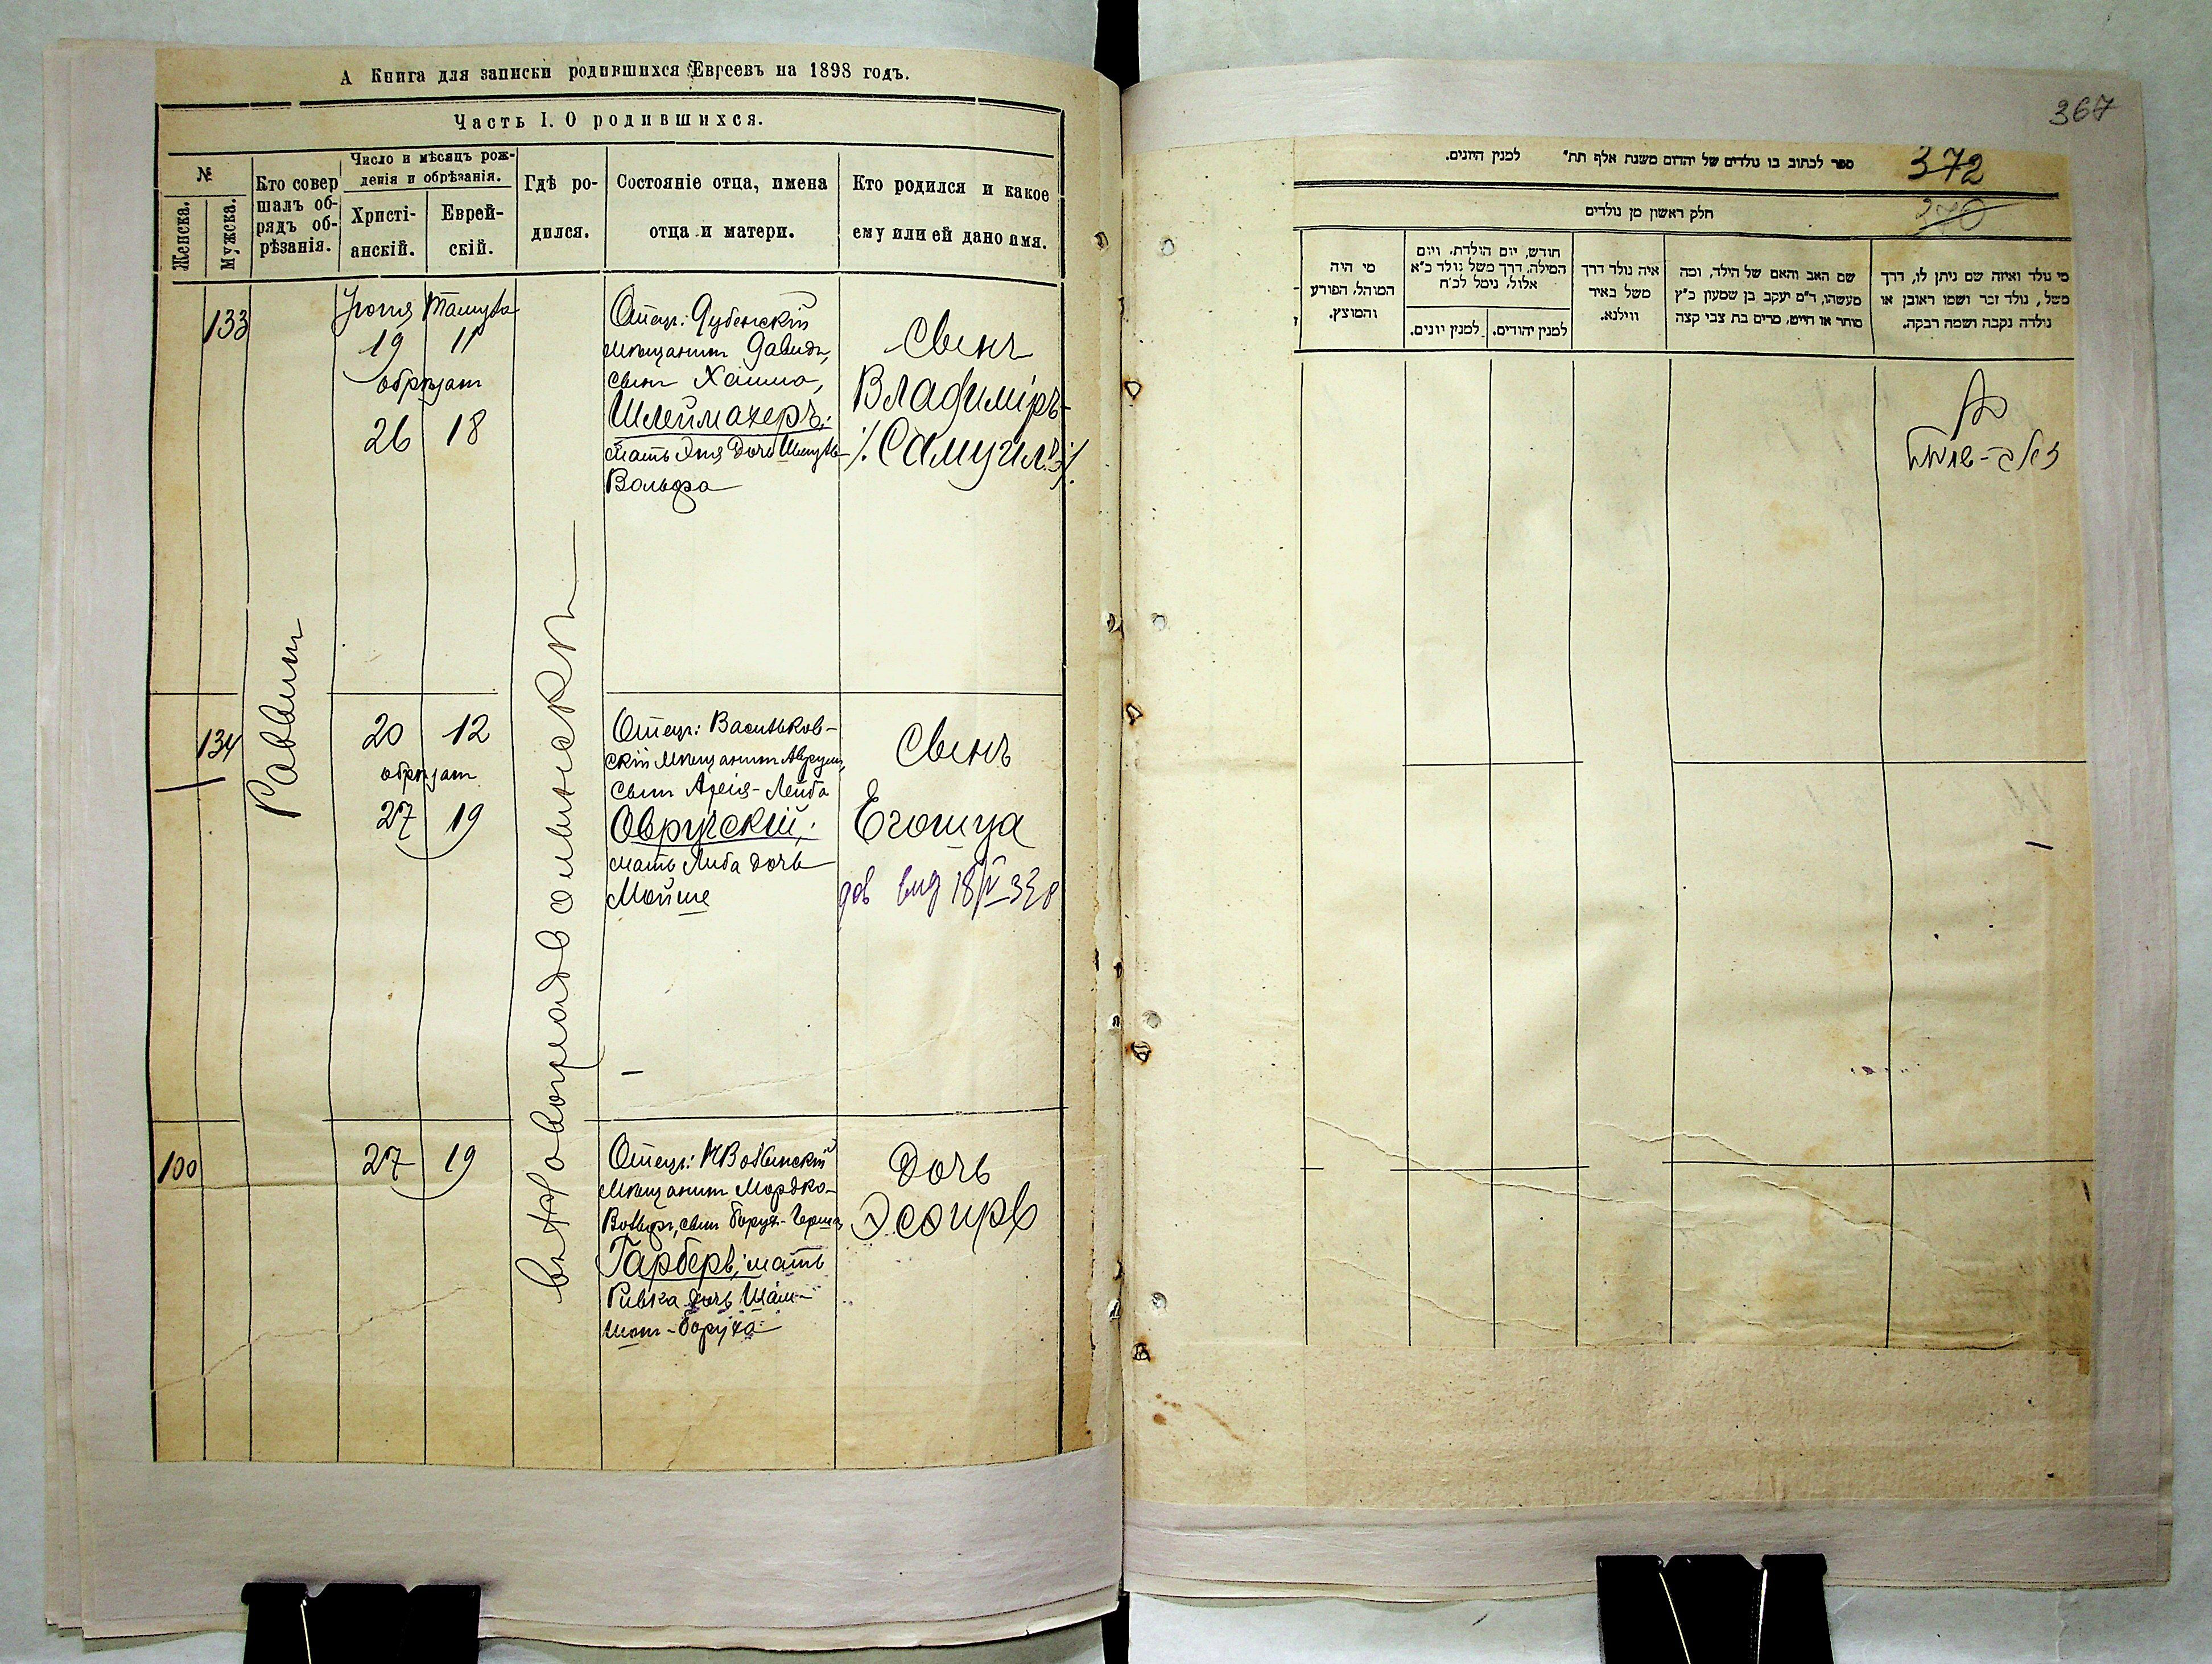 А Книга для записки родившихся Евреевъ на 1898 годъ.
Часть I. О родившихся.
№
Женска.
Мужска.
Кто совер
шалъ об-
рядъ об-
рѣзанія.
Число и мѣсяцъ рож-
денія и обрѣзанія.
Христі-
анскій.
Еврей-
скій.
Гдѣ ро-
дился.
Состояніе отца, имена
отца и матери.
Кто родился и какое
ему или ей дано имя.
133
Раввинъ
Іюня
Тамуза
19
11
обрѣзанъ
26
18
Отецъ: Дубенскій
мѣщанинъ Давидъ,
сынъ Хаима,
Шлеймахеръ;
мать Этя дочь
Вольфа
Сынъ
Владиміръ
/.Самуилъ/.
134
20
12
обрѣзанъ
27
19
Отецъ: Васильков-
скій мѣщанинъ Аврумъ,
сынъ Арія-Лейба
Овручскій;
мать Либа дочь
Мойше
Сынъ
Егошуа
100
27
19
Отецъ:
мѣщанинъ Мордко-
Вольфъ, сынъ Борух-Герша
Гарберъ; мать
Ривка дочь Шам-
шон-Боруха
Дочь
Эсөирь
367
372
ספר לכתוב בו נולדים של יהדים משנת אלף תת״ למנין היונים.
270
חלק ראשון מן נולדים
מי נולד ואיזה שם ניתן לו, דרך
משל, נולד זכר ושמו ראובן או
נולדה נקבה ושמה רבקה.
שם האב והאם של הילד, ומה
מעשהו, ד״מ יעקב בן שמעון כ״ץ
סוחר או חייט, מרים בת צבי קצה
איה נולד דרך
משל באיר
ווילנא.
חודש, יום הולדת, ויום
המילה, דרך משל נולד כ״א
אלול, נימל לכ״ח
למנין יהודים.
למנין יונים.
מי היה
המוהל, הפורע
והמוצץ.